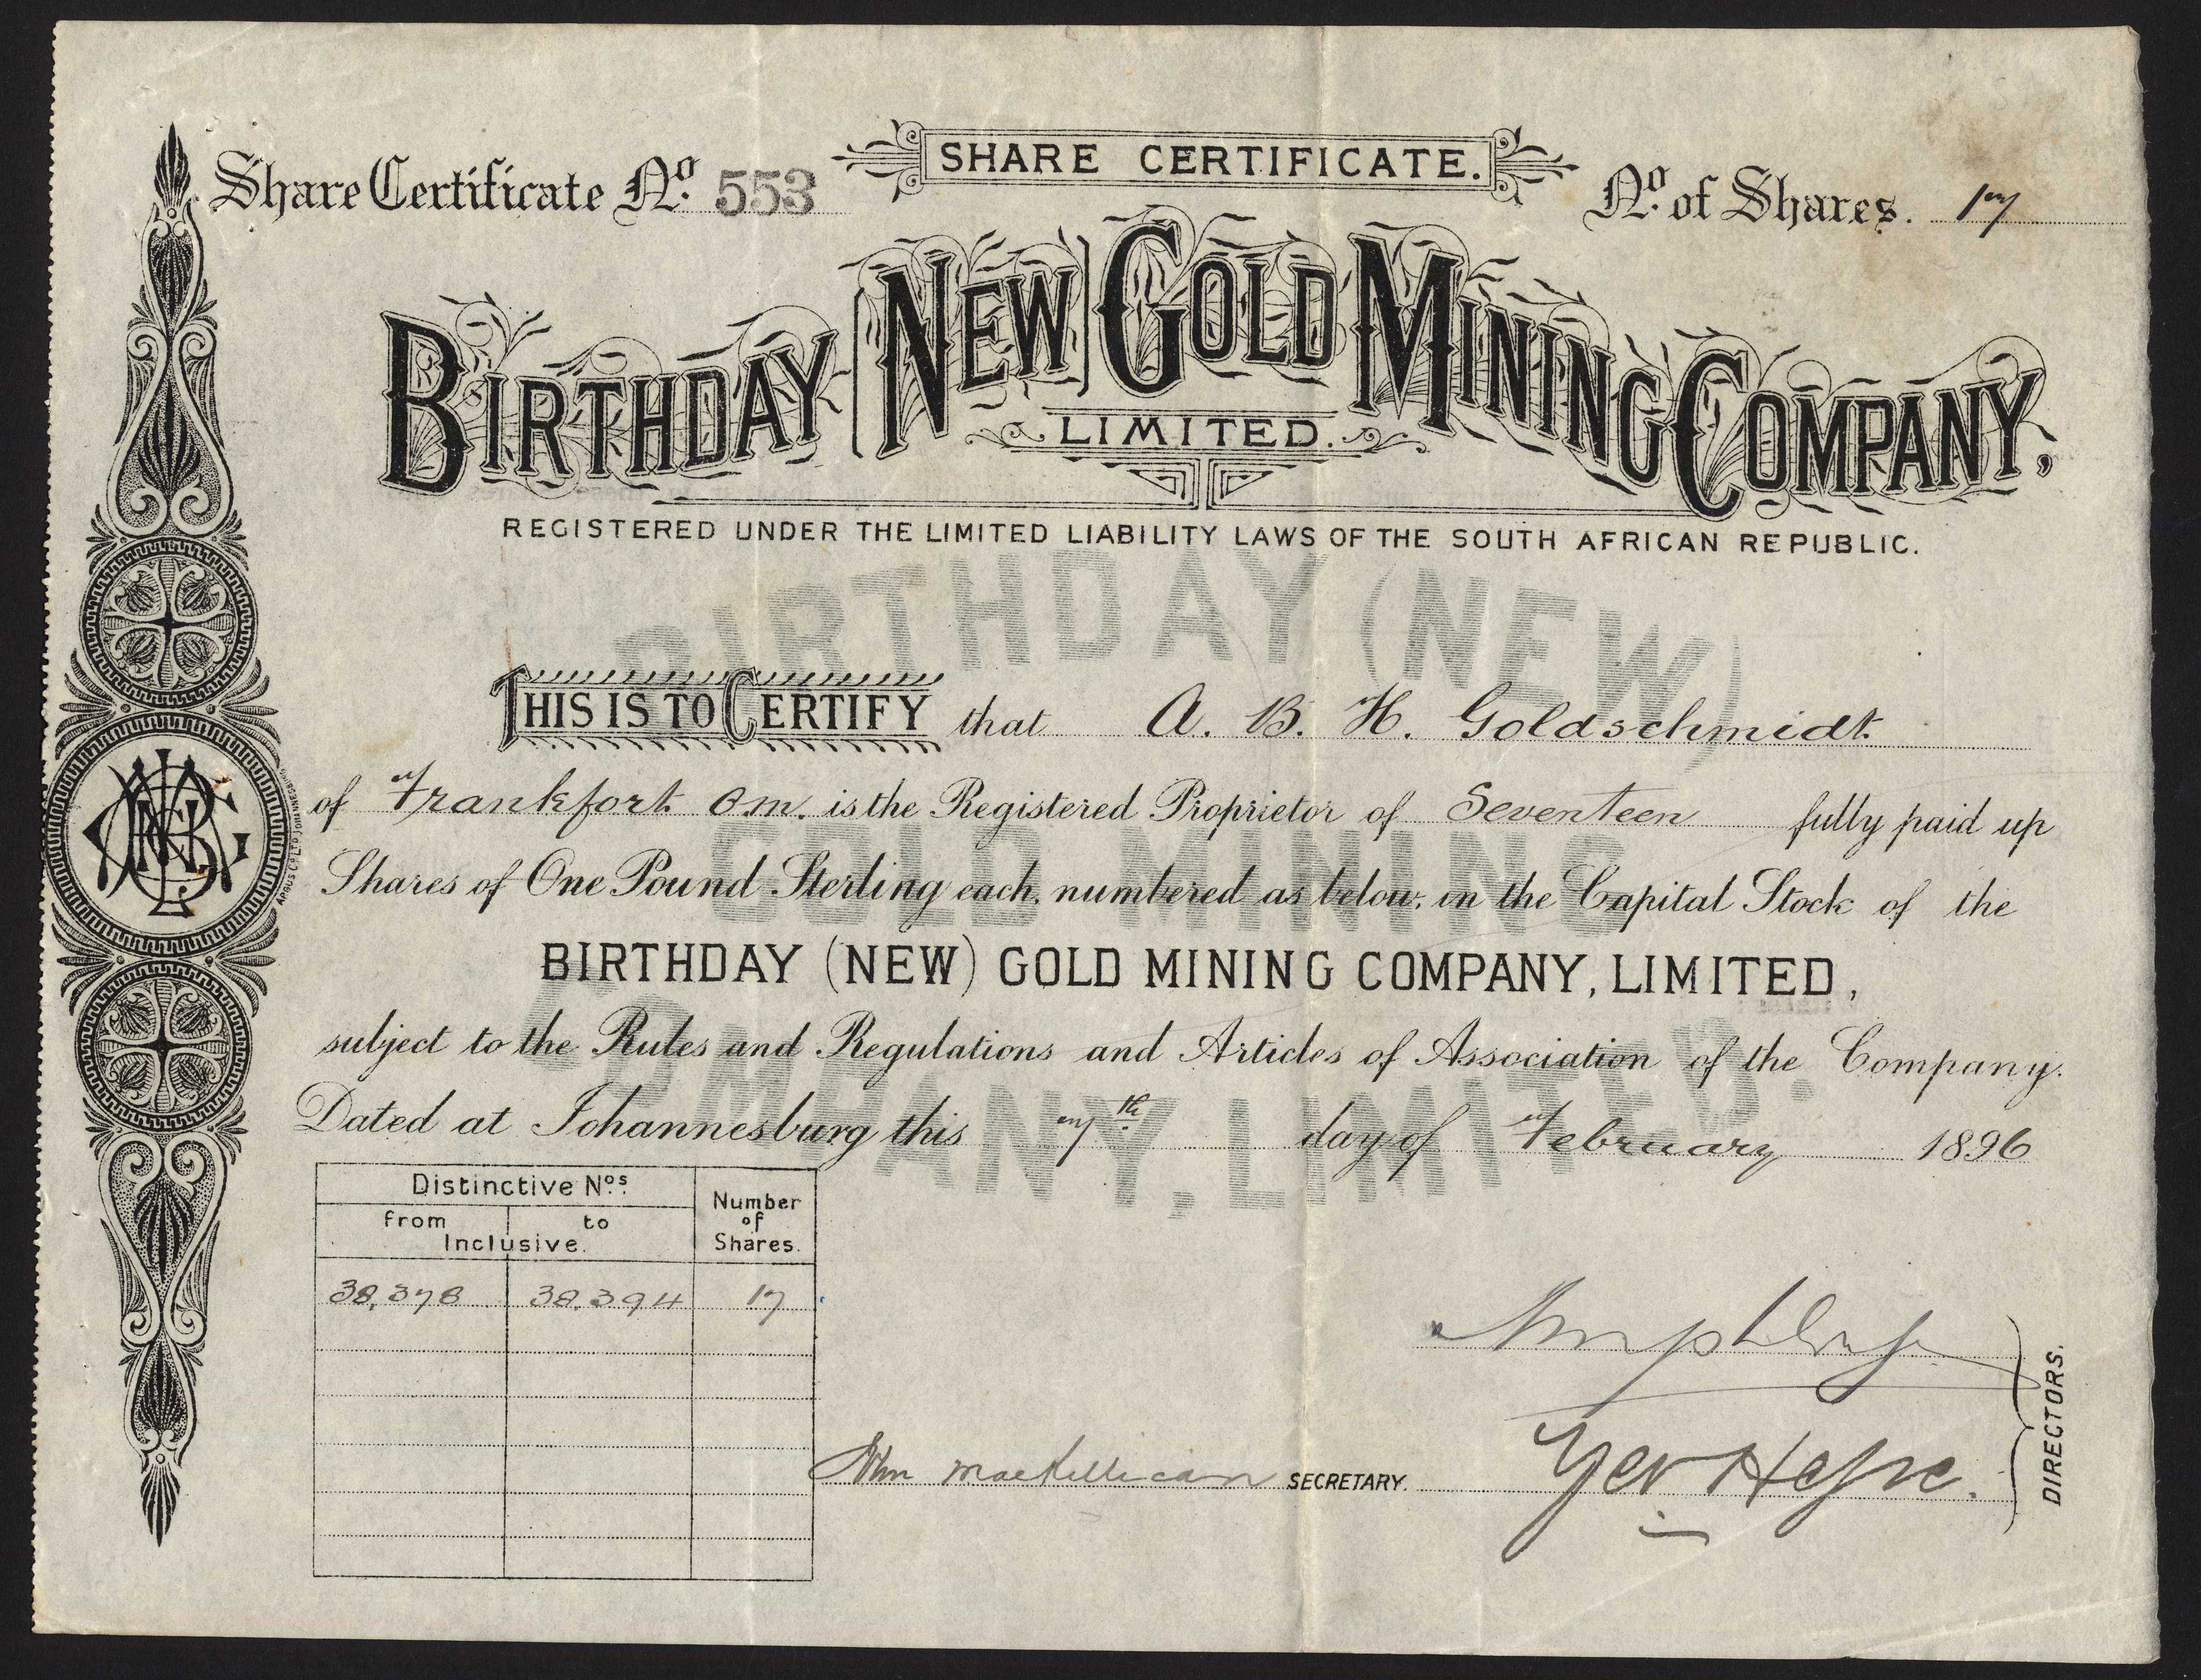 SHARE CERTIFICATE.
Share Certificate No. 553
No. of Shares. 17
BIRTHDAY (NEW) GOLD MINING COMPANY,
LIMITED.
REGISTERED UNDER THE LIMITED LIABILITY LAWS OF THE SOUTH AFRICAN REPUBLIC.
BIRTHDAY (NEW)
GOLD MINING
COMPANY, LIMITED.
THIS IS TO CERTIFY that A. B. H. Goldschmidt
of Frankfort o/m. is the Registered Proprietor of Seventeen fully paid up
Shares of One Pound Sterling each, numbered as below, in the Capital Stock of the
BIRTHDAY (NEW) GOLD MINING COMPANY, LIMITED,
subject to the Rules and Regulations and Articles of Association of the Company.
Dated at Johannesburg this 7th day of February 1896
Distinctive Nos.
from to
Inclusive.
Number
of
Shares.
38,378 38,394 17
SECRETARY.
DIRECTORS.